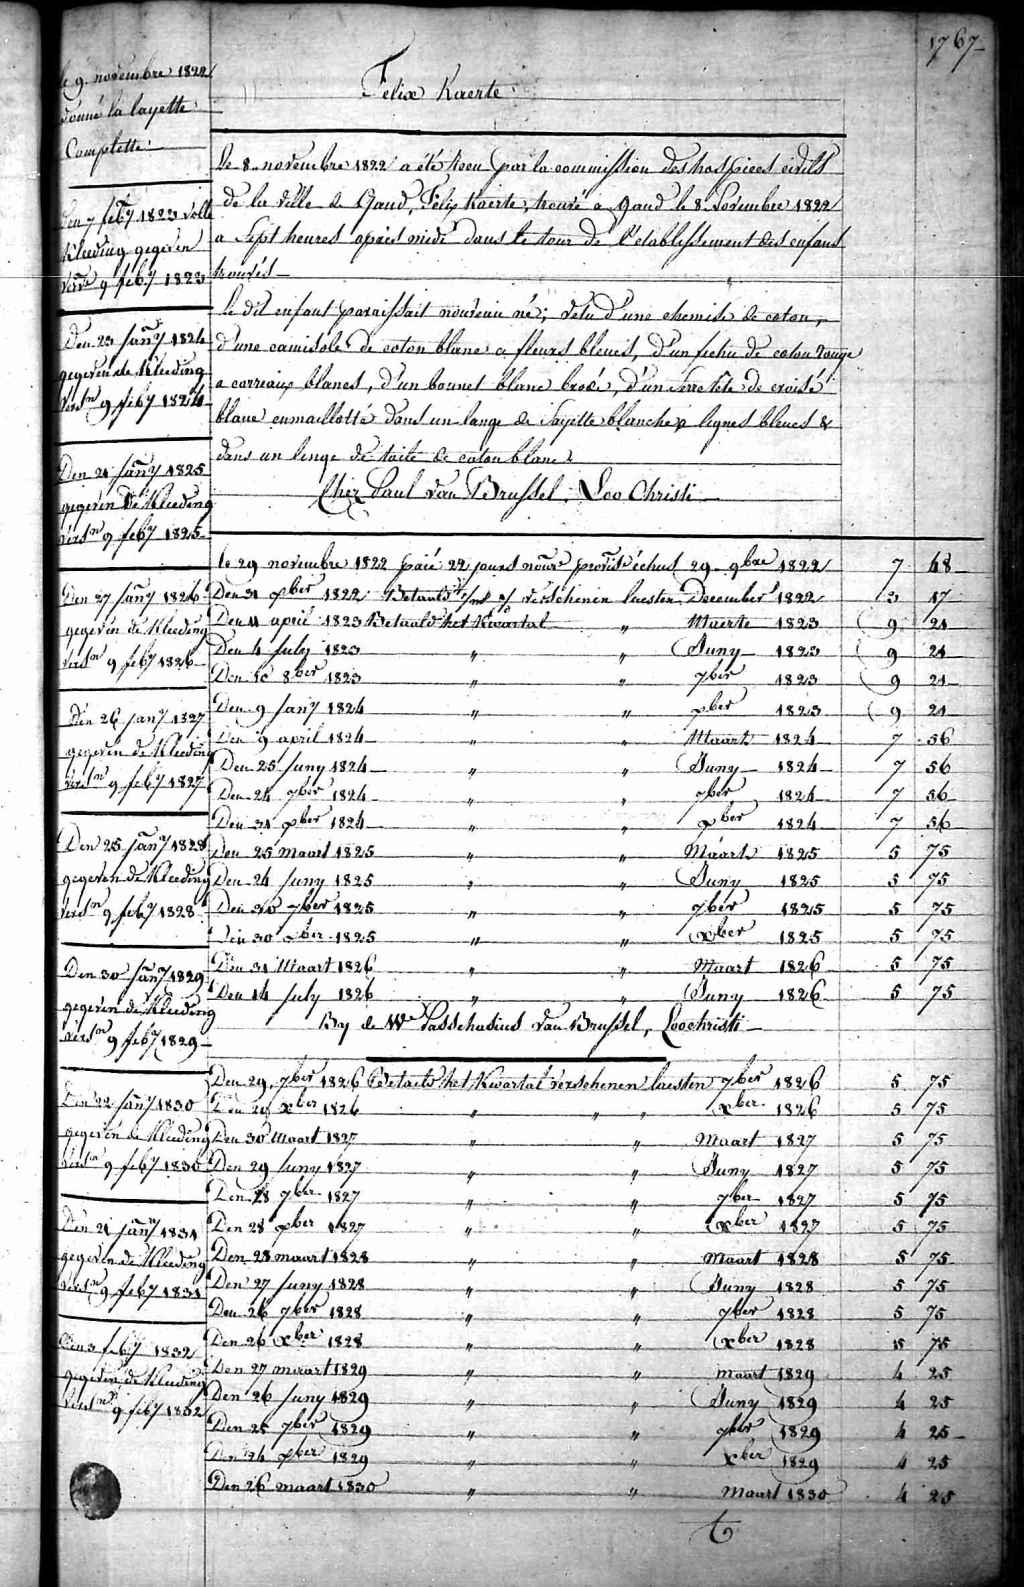 1767
Felix Kaerte
le 9 novembre 1822
donné la layette
Complette
Den 7 feby 1823 volle
Kleeding gegeven
verse 9 feby 1823
Den 23 Jany 1824
gegeven de Kleeding
versn 9 feby 1824
Den 21 Jany 1825
gegeven de Kleeding
versn 9 feby 1825
Den 27 Jany 1826
gegeven de Kleeding
versn 9 feby 1826
Den 26 Jany 1827
gegeven de Kleeding
versn 9 feby 1827
Den 25 Jany 1828
gegeven de Kleeding
versn 9 feby 1828
Den 30 Jany 1829
gegeven de Kleeding
versn 9 feby 1829
Den 22 Jany 1830
gegeven de Kleeding
versn 9 feby 1830
Den 21 Jany 1831
gegeven de Kleeding
versn 9 feby 1831
Den 3 feby 1832
gegeven de Kleeding
versn 9 feby 1832
Le 8 novembre 1822 a été recu par la commission des hospices civils
de la ville de Gand, Félix Kaerte, trouvé a Gand le 8 Novembre 1822
a Sept heures après midi dans le tour de l'etablissement des enfans
trouvés
le dit enfant paraissait nouveau né; vetu d'une chemise de coton,
d'une camisole de coton blanc a fleurs bleues, d'un fichu de coton rouge
a carreaux blancs, d'un bonnet blanc brodé, d'un Serretête de croisé
blanc enmaillotté dans un lange de Sayette blanche a lignes bleues &
dans un linge de taite de coton blanc
Chez Paul van Brussel, Loo Christi
le 29 novembre 1822 paié 22 jours nourre provise échus 29 9bre 1822 7 48
Den 31 xber 1822 Betaald verschenen laesten December 1822 3 17
Den 11 april 1823 Betaald het Kwartal " Maerte 1823 9 21
Den 4 July 1823 " " Juny 1823 9 21
Den 10 8ber 1823 " " 7ber 1823 9 21
Den 9 Jany 1824 " " xber 1823 9 21
Den 9 april 1824 " " Maart 1824 7 56
Den 25 Juny 1824 " " Juny 1824 7 56
Den 24 7ber 1824 " " 7ber 1824 7 56
Den 31 xber 1824 " " xber 1824 7 56
Den 25 maart 1825 " " Maart 1825 5 75
Den 24 Juny 1825 " " Juny 1825 5 75
Den 30 7ber 1825 " " 7ber 1825 5 75
Den 30 xber 1825 " " xber 1825 5 75
Den 31 Maart 1826 " " Maart 1826 5 75
Den 14 July 1826 " " Juny 1826 5 75
By de We Passchasius van Brussel, Loochristi
Den 29 7ber 1826 Betaald het Kwartal verschenen laesten 7ber 1826 5 75
Den 29 xber 1826 " " " xber 1826 5 75
Den 30 Maart 1827 " " Maart 1827 5 75
Den 29 Juny 1827 " " Juny 1827 5 75
Den 28 7ber 1827 " " 7ber 1827 5 75
Den 28 xber 1827 " " xber 1827 5 75
Den 28 maart 1828 " " Maart 1828 5 75
Den 27 Juny 1828 " " Juny 1828 5 75
Den 26 7ber 1828 " " 7ber 1828 5 75
Den 26 xber 1828 " " xber 1828 5 75
Den 27 maart 1829 " " maart 1829 4 25
Den 26 Juny 1829 " " Juny 1829 4 25
Den 25 7ber 1829 " " 7ber 1829 4 25
Den 24 xber 1829 " " xber 1829 4 25
Den 26 maart 1830 " " Maart 1830 4 25